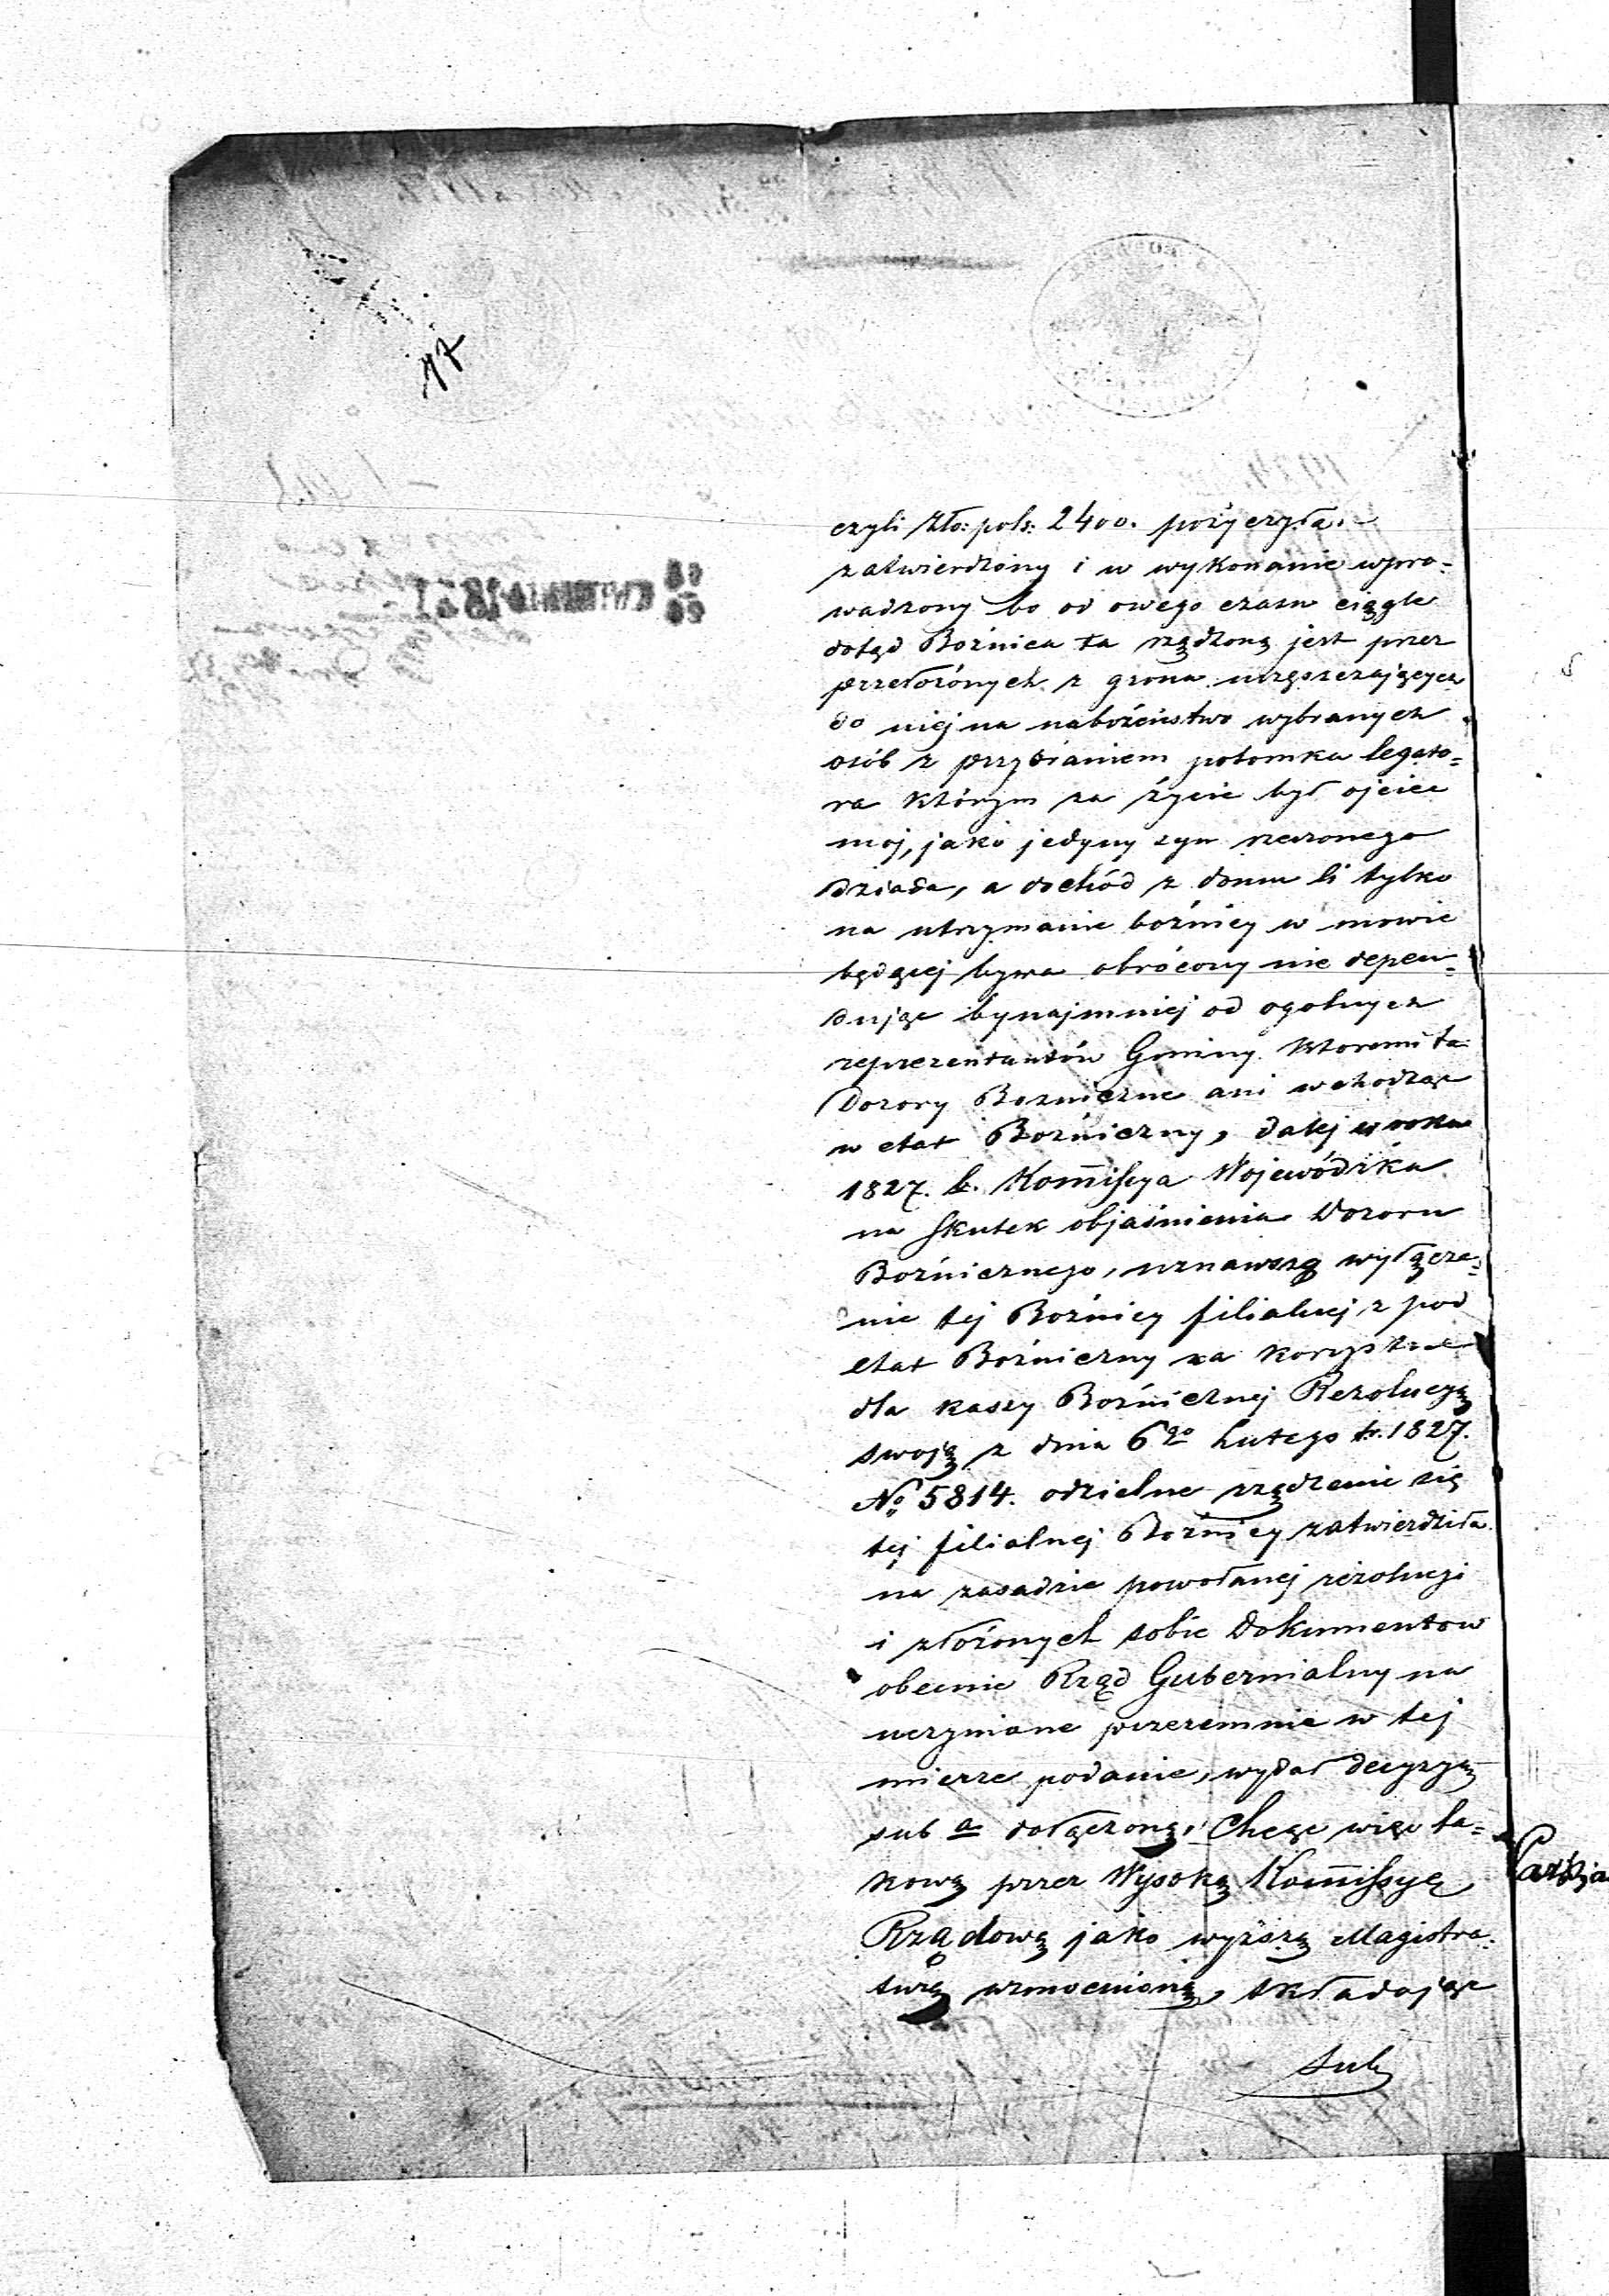 17
czyli Zło: pols: 2400. pożyczyła.
zatwierdzony i w wykonanie wpro-
wadzony bo od owego czasu ciągle
dotąd Bożnica ta rządzoną jest przez
przełożonych z grona uczęszczających
do niej na nabożeństwo wybranych
osób z przybraniem potomka legato=
ra którym za życie był ojciec
mój, jako jedyny syn rzeczonego
dziada, a dochód z domu li tylko
na utrzymanie bożnicy w mowie
będącej bywa obrócony nie depen=
dując bynajmniej od ogolnych
reprezentantów Gminy któremi są
Dozory Bozniczne ani wchodząc
w etat Bożniczny, dalej w roku
1827. b. Kommissya Wojewódzka
na skutek objaśnienia Dozoru
Bożnicznego, uznawszy wyłącze=
nie tej Bożnicy filialnej z pod
etat Bożniczny za korzystne
dla kassy Bożnicznej Rezolucyą
swoją z dnia 6go Lutego tr. 1827.
No 5814. odzielne rządzenie się
tej filialnej Bożnicy zatwierdziła
na zasadzie powołanej rezolucyi
i złożonych sobie Dokumentow
obecnie Rząd Gubernialny na
uczynione przezemnie w tej
mierze podanie, wydał decyzyą
sub a dołączoną, Chcąc więc ta=
kową przez Wysoką Kommissyę
Rządową jako wyższą Magistra=
turę wzmocnioną, składając
sub